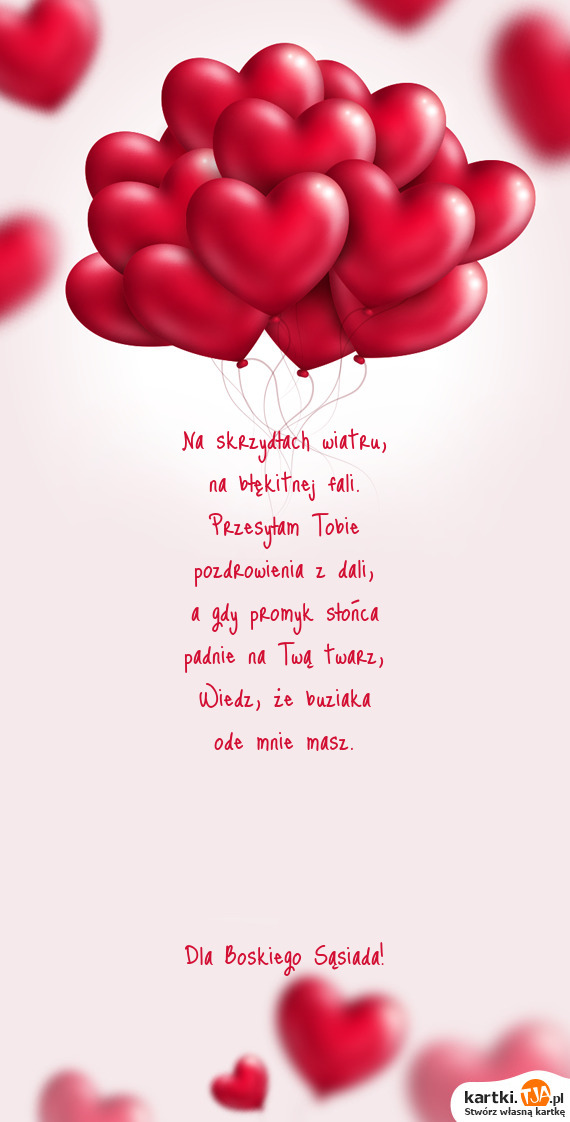 Na skrzydłach wiatru,
na błękitnej fali.
Przesyłam Tobie
pozdrowienia z dali,
a gdy promyk słońca
padnie na Twą twarz,
Wiedz, że buziaka
ode mnie masz.
Dla Boskiego Sąsiada!
kartki.TJA.pl
Stwórz własną kartkę